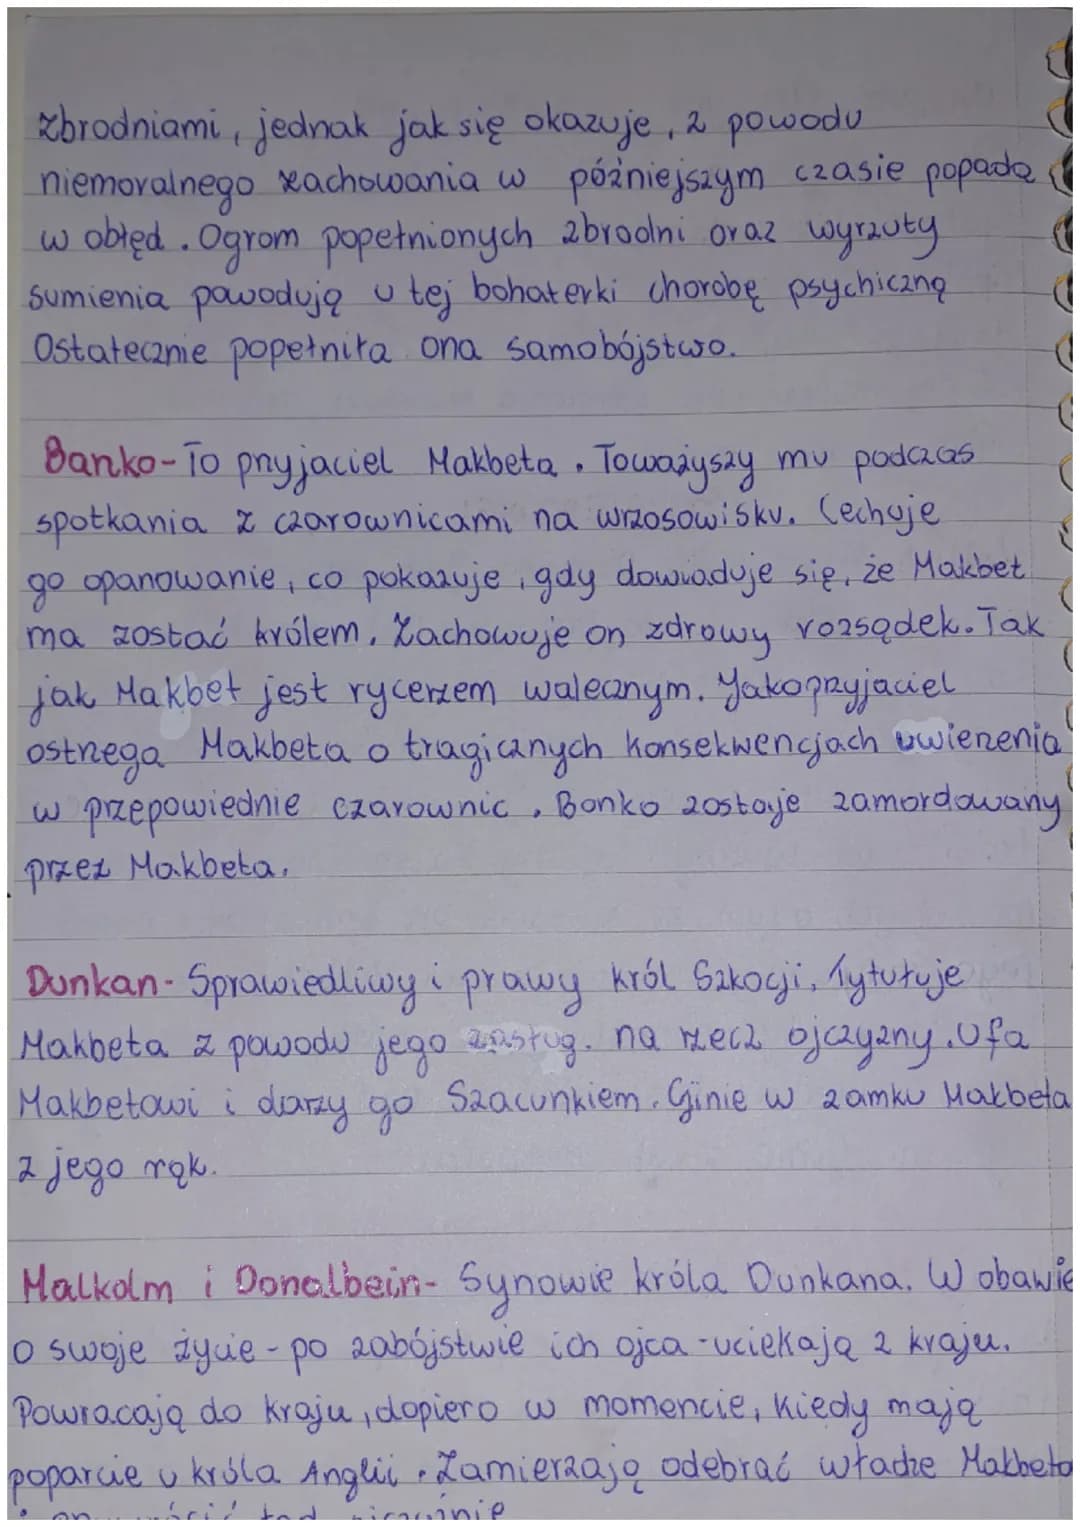 zbrodniami, jednak jak się okazuje, z powodu
niemoralnego zachowania w późniejszym czasie popada
w obłęd. Ogrom popełnionych zbrodni oraz wyrzuty
sumienia powodują u tej bohaterki chorobę psychiczną
Ostatecznie popełniła ona samobójstwo.
Banko- To przyjaciel Makbeta. Toważyszy mu podczas
spotkania z czarownicami na wrzosowisku. Cechuje
go opanowanie, co pokazuje, gdy dowiaduje się, że Makbet
ma zostać królem. Zachowuje on zdrowy rozsądek. Tak
jak Makbet jest rycerzem walecznym. Jako przyjaciel
ostrzega Makbeta o tragicznych konsekwencjach uwierzenia
w przepowiednie czarownic. Banko zostaje zamordowany
przez Makbeta.
Dunkan- Sprawiedliwy i prawy król Szkocji. Tytułuje
Makbeta z powodu jego zasług. na rzecz ojczyzny. Ufa
Makbetowi i darzy go szacunkiem. Ginie w zamku Makbeta
z jego rąk.
Malkolm i Donalbein- Synowie króla Dunkana. W obawie
o swoje życie - po zabójstwie ich ojca - uciekają z kraju.
Powracają do kraju, dopiero w momencie, kiedy mają
poparcie u króla Anglii. Zamierzają odebrać władze Makbeto